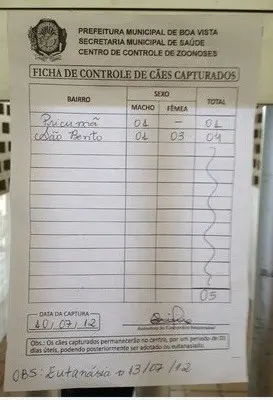 PREFEITURA MUNICIPAL DE BOA VISTA
SECRETARIA MUNICIPAL DE SAÚDE
CENTRO DE CONTROLE DE ZOONOSES
FICHA DE CONTROLE DE CÃES CAPTURADOS
BAIRRO SEXO TOTAL
MACHO FÊMEA
Pricumã 01 - 01
São Bento 01 03 04
05
DATA DA CAPTURA
10/07/12
Assinatura do Funcionário Responsável
Obs.: Os cães capturados permanecerão no centro, por um período de 03
dias úteis, podendo posteriormente ser adotado ou eutanasiado.
OBS: Eutanásia 13/07/12